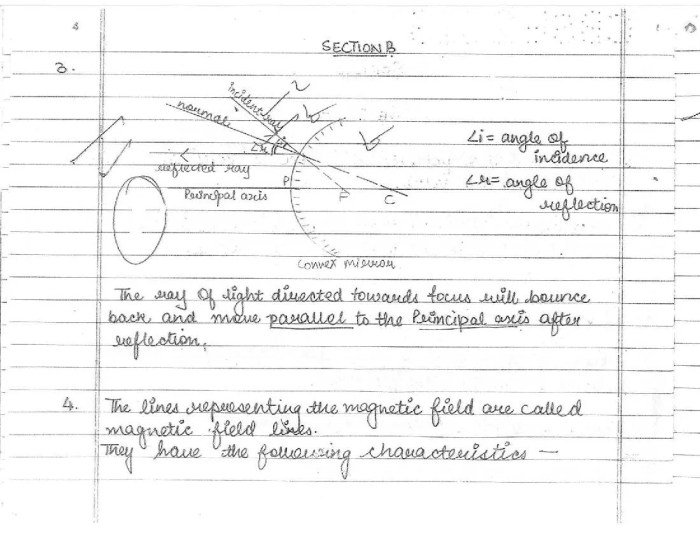 SECTION B
3.
incident ray
normal
∠i
∠r
reflected ray
Principal axis
P
F
C
∠i = angle of
incidence
∠r = angle of
reflection
Convex mirror
The ray of light directed towards focus will bounce
back and move parallel to the Principal axis after
reflection.
4. The lines representing the magnetic field are called
magnetic field lines.
They have the following characteristics —